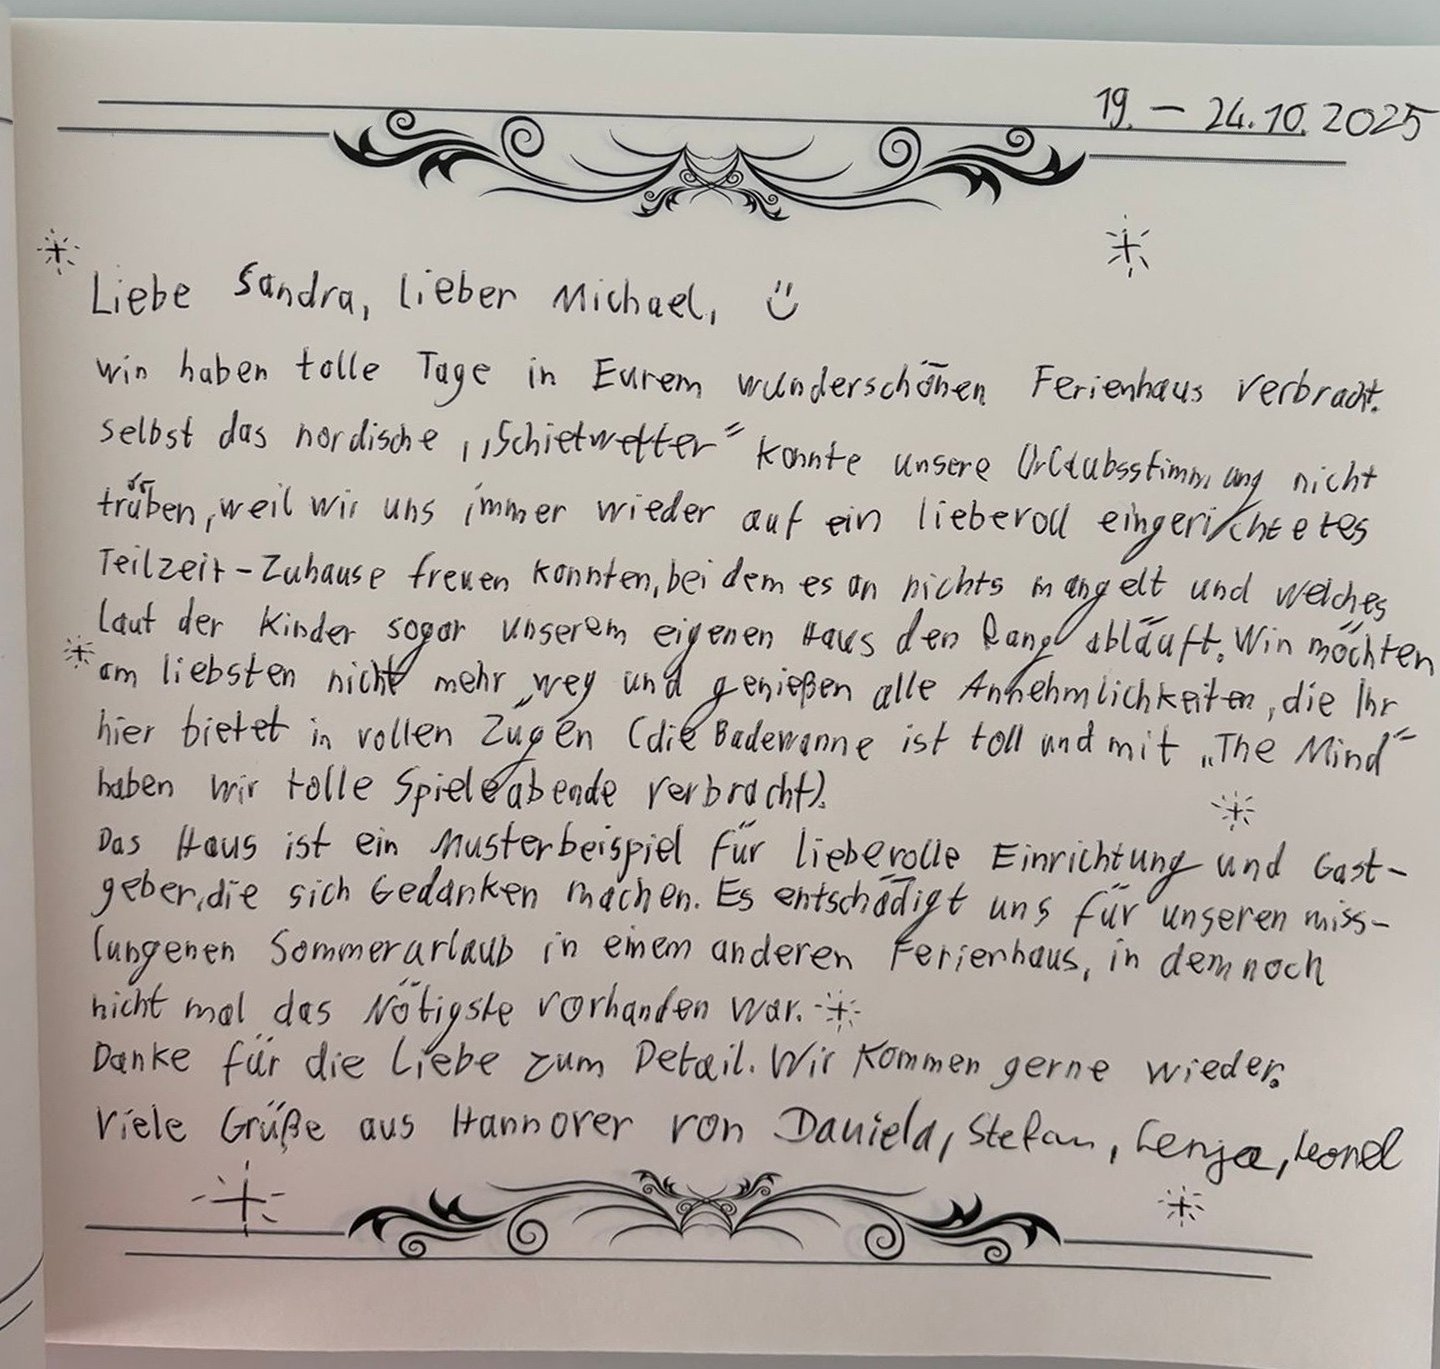 19. – 24.10.2025
Liebe Sandra, lieber Michael,
wir haben tolle Tage in Eurem wunderschönen Ferienhaus verbracht.
Selbst das nordische „Schietwetter" konnte unsere Urlaubsstimmung nicht
trüben, weil wir uns immer wieder auf ein liebevoll eingerichtetes
Teilzeit-Zuhause freuen konnten, bei dem es an nichts mangelt und welches
laut der Kinder sogar unserem eigenen Haus den Rang abläuft. Wir möchten
am liebsten nicht mehr weg und genießen alle Annehmlichkeiten, die Ihr
hier bietet in vollen Zügen (die Badewanne ist toll und mit „The Mind"
haben wir tolle Spieleabende verbracht).
Das Haus ist ein Musterbeispiel für liebevolle Einrichtung und Gast-
geber, die sich Gedanken machen. Es entschädigt uns für unseren miss-
lungenen Sommerurlaub in einem anderen Ferienhaus, in dem noch
nicht mal das Nötigste vorhanden war.
Danke für die Liebe zum Detail. Wir kommen gerne wieder.
Viele Grüße aus Hannover von Daniela, Stefan, Lenja, Leonel